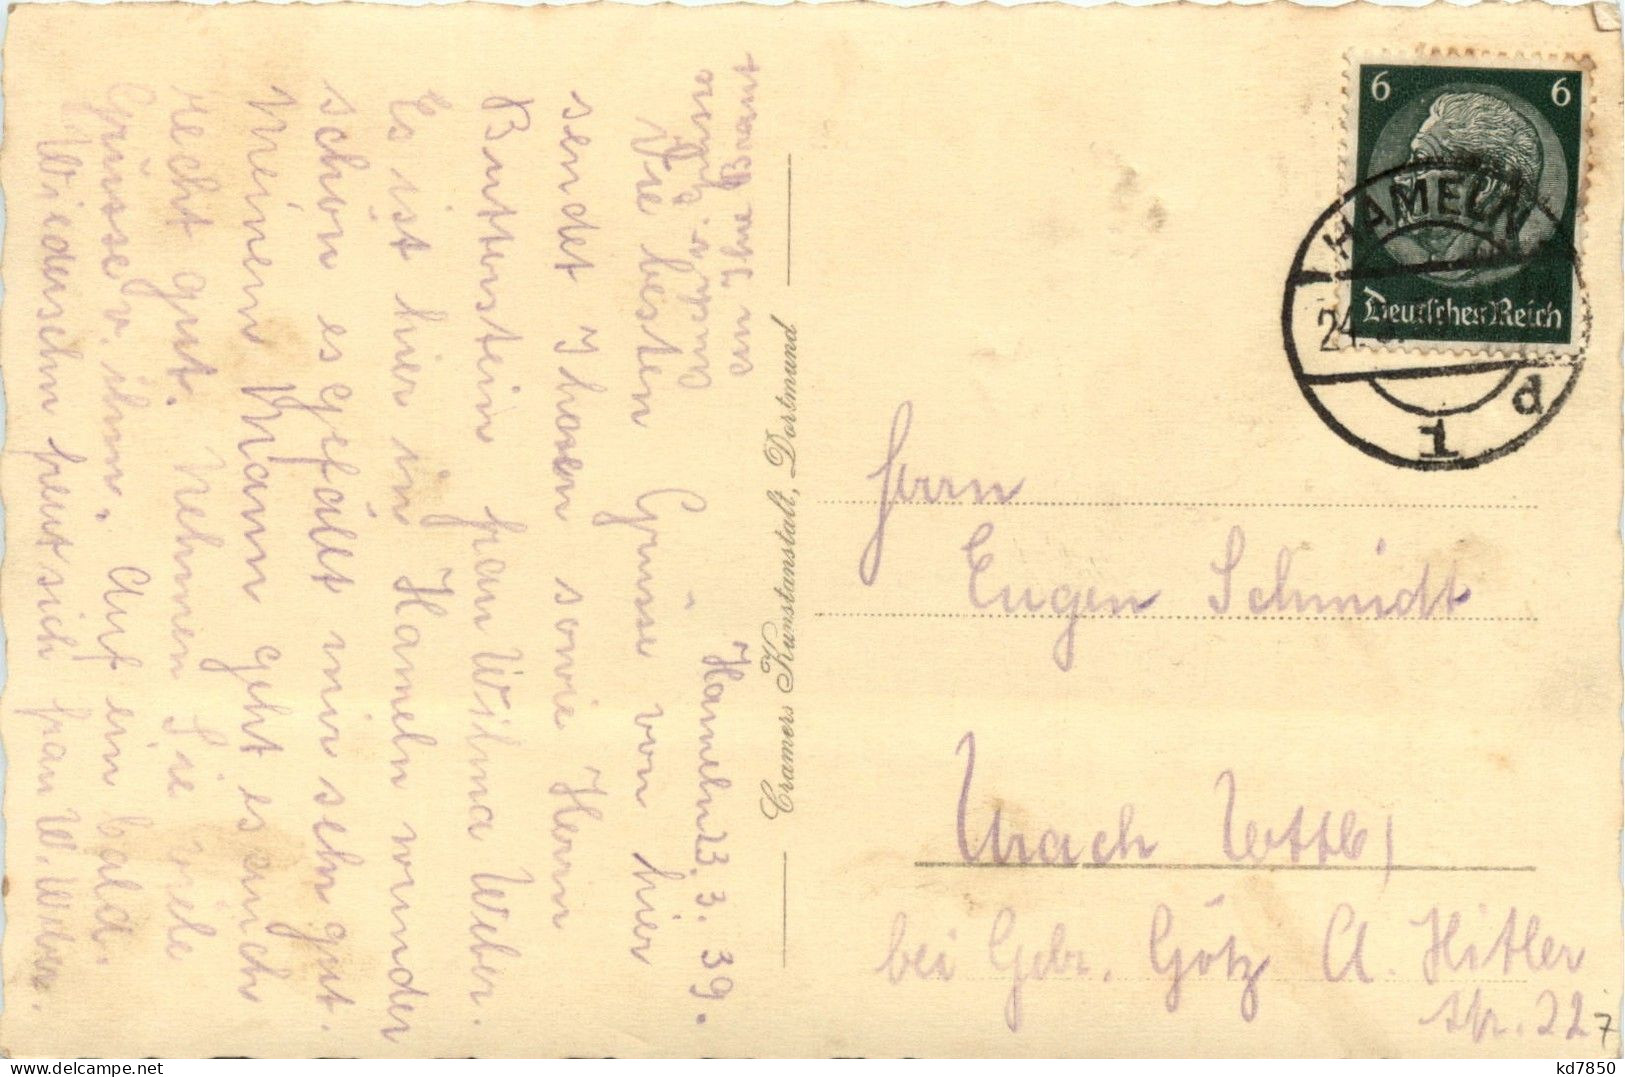 Hameln 23. 3. 39.
Die besten Grüsse von hier
sendet Ihnen sowie Herrn
Buttenstein frau Wilma Weber.
Es ist hier in Hameln wunder
schon es gefällt mir sehr gut.
Meinem Mann geht es auch
recht gut. Nehmen Sie viele
Grüsse v. ihm. Auf ein bald.
Wiedersehn freut sich frau W. Weber.
an Ihre Braut
Cramers Kunstanstalt, Dortmund
6 6
Deutsches Reich
HAMELN
24.
1 d
Herrn
Eugen Schmidt
Urach Wttb,
bei Gebr. Götz A. Hitler
str. 22
7
kd7850